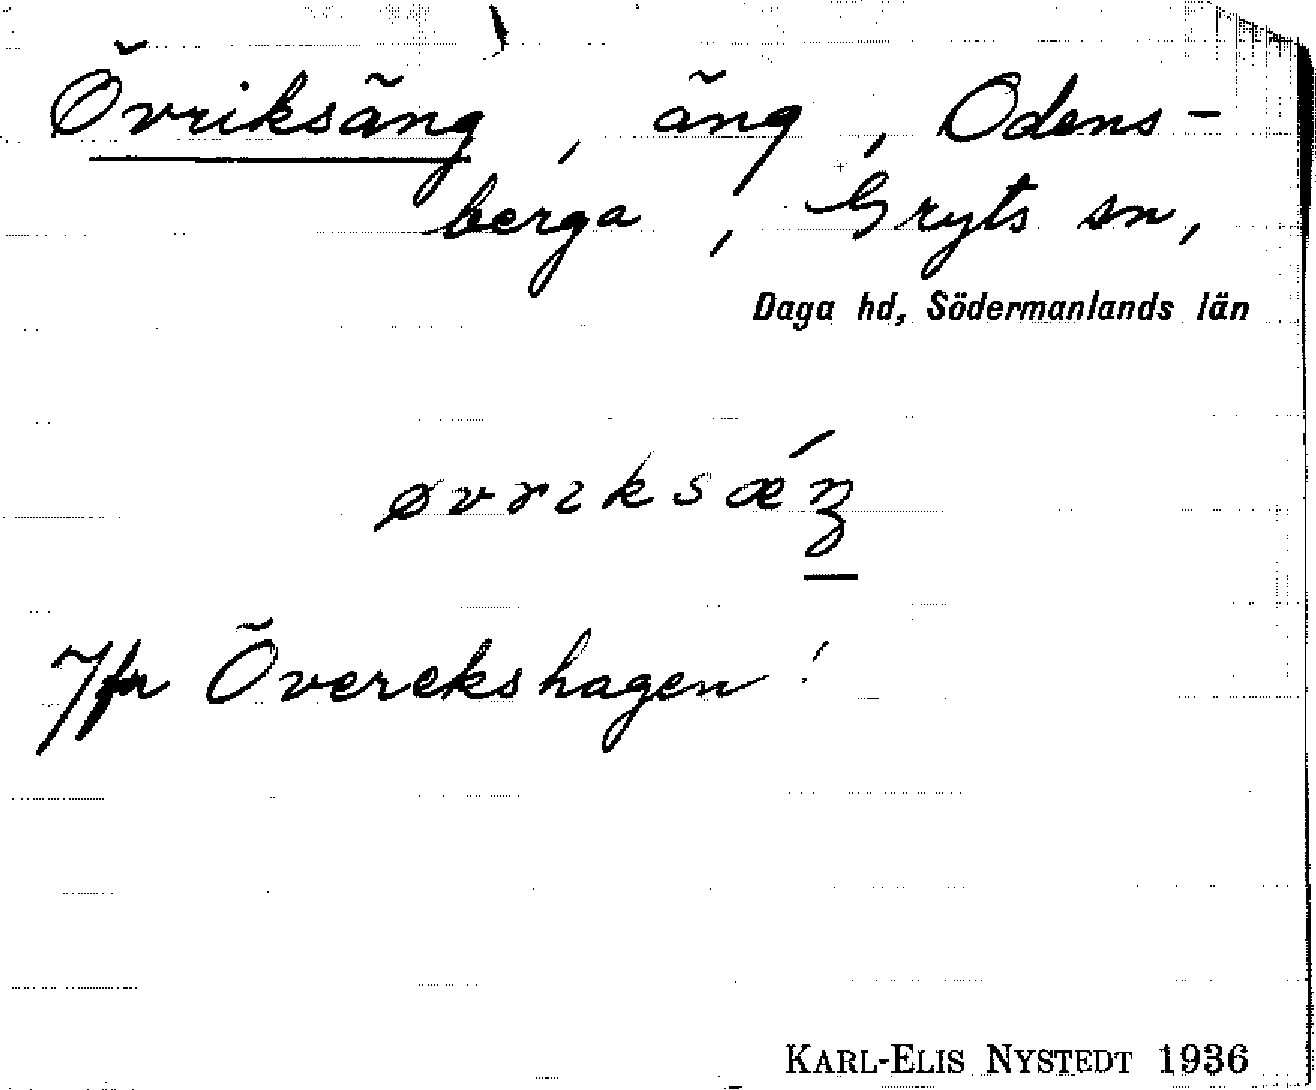 Övriksäng, äng, Odens-
berga, Gryts sn,
Daga hd, Södermanlands län
øvriksǽŋ
Jfr Överekshagen!
KARL-ELIS NYSTEDT 1936